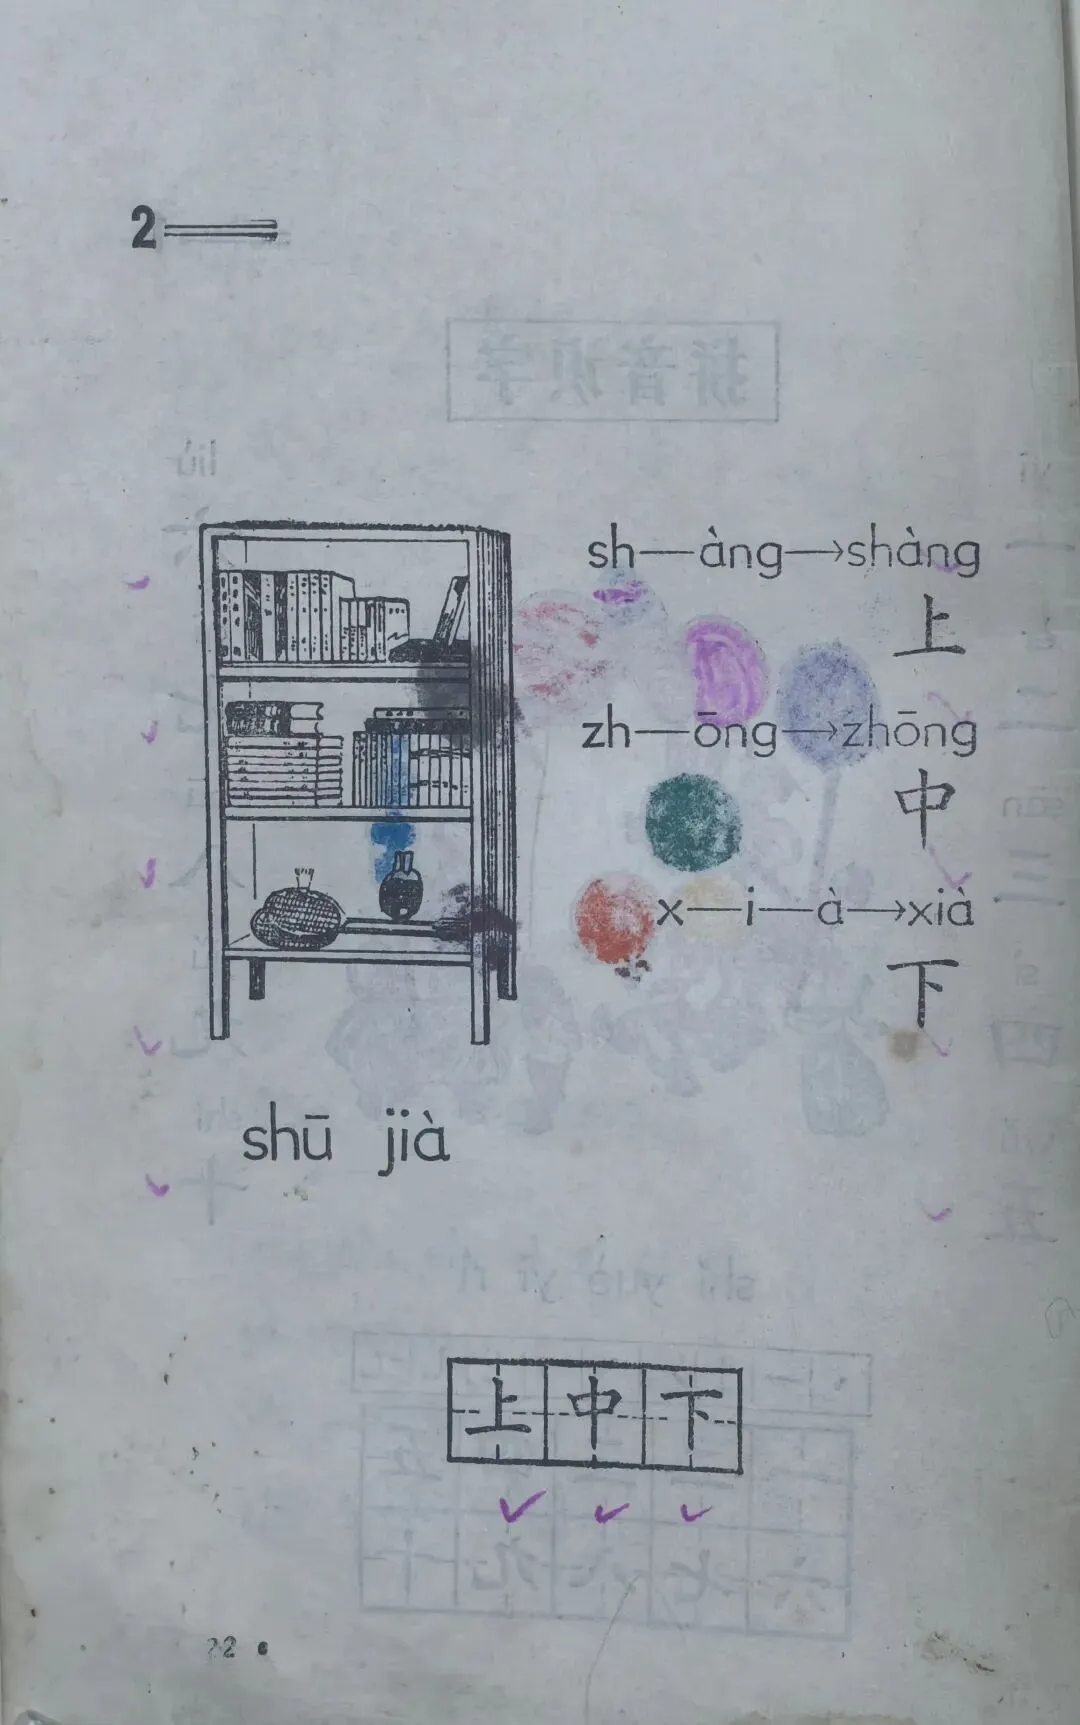 2
sh—àng→shàng
上
zh—ōng→zhōng
中
x—i—à→xià
下
shū jià
上中下
22